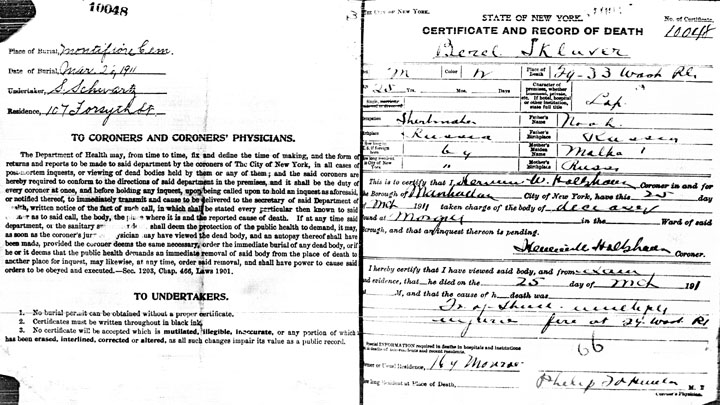 10048
Place of Burial, Montifiore Cem.
Date of Burial, Mar. 26, 1911
Undertaker, S. Schwartz
Residence, 107 Forsyth St
TO CORONERS AND CORONERS' PHYSICIANS.
The Department of Health may, from time to time, fix and define the time of making, and the form of
returns and reports to be made to said department by the coroners of The City of New York, in all cases of
post-mortem inquests, or viewing of dead bodies held by them or any of them; and the said coroners are
hereby required to conform to the directions of said department in the premises, and it shall be the duty of
every coroner at once, and before holding any inquest, upon being called upon to hold an inquest as aforesaid
or notified thereof, to immediately transmit and cause to be delivered to the secretary of said Department of
Health, written notice of the fact of such call, in which shall be stated every particular then known to said
as to said call, the body, the place where it is and the reported cause of death. If at any time said
department, or the sanitary shall deem the protection of the public health to demand, it may,
as soon as the coroner's physician may have viewed the dead body, and an autopsy thereof shall have
been made, provided the coroner deems the same necessary, order the immediate burial of any dead body, or if
he or it deems that the public health demands an immediate removal of said body from the place of death to
another place for inquest, may likewise, at any time, order said removal, and shall have power to cause said
orders to be obeyed and executed.—Sec. 1203, Chap. 466, Laws 1901.
TO UNDERTAKERS.
1. No burial permit can be obtained without a proper certificate.
2. Certificates must be written throughout in black ink.
3. No certificate will be accepted which is mutilated, illegible, inaccurate, or any portion of which
has been erased, interlined, corrected or altered, as all such changes impair its value as a public record.
THE CITY OF NEW YORK.
STATE OF NEW YORK.
No. of Certificate.
CERTIFICATE AND RECORD OF DEATH
10048
Berel Skluver
M Color W Place of Death 29-33 Wash Pl.
25 Yrs. Mos. Days. Character of premises, whether
Father's Name Noah
Birthplace Russia Father's Birthplace Russia
6 y Mother's Maiden Name Malka
" Mother's Birthplace Russia
This is to certify that I, Coroner in and for
the Borough of Manhattan City of New York, have this 25 day
of Mch 1911 taken charge of the body of deceased
found at Morgue in the Ward of said
Borough, and that an inquest thereon is pending.
Coroner.
I hereby certify that I have viewed said body, and from
and evidence, that he died on the 25 day of Mch 191
M, and that the cause of h death was
multiple
injuries fire at 29 Wash Pl
66
Special INFORMATION required in deaths in hospitals and institutions
Former or Usual Residence, 164 Monroe
How long Resident at Place of Death,
M. D.
Coroner's Physician.